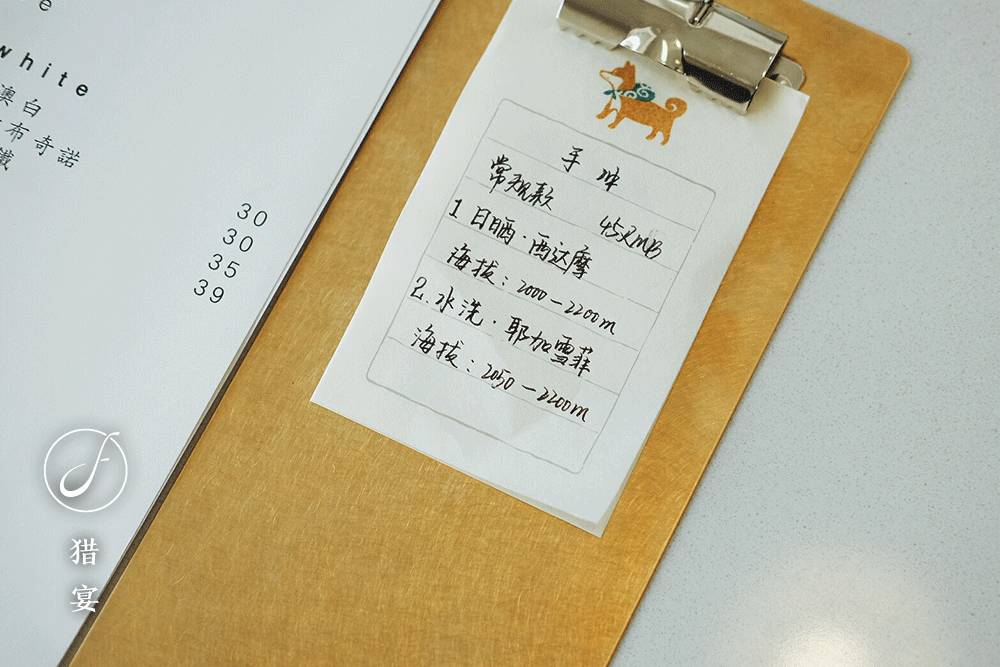 white
澳白
布奇諾
30
30
35
39
手冲
常规款 45RMB
1 日晒·西达摩
海拔：2000-2200m
2.水洗·耶加雪菲
海拔：2050-2200m
猎宴